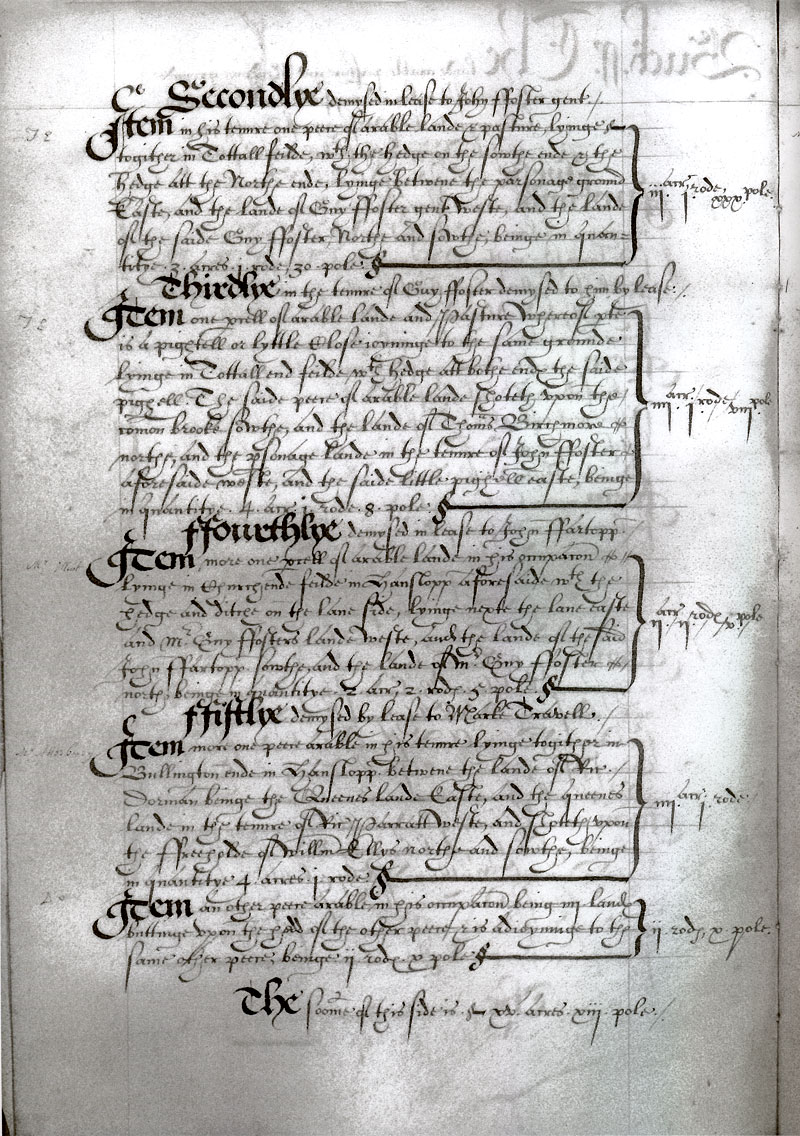 Secondlye demysed in lease to John ffoster gent./
Item in his tenure one peece of arable lande & pasture, lyinge
togither in Tottall feilde, wth the hedge on the sowthe ende & the
hedge att the Northe ende, lyinge betwene the parsonage ground
Easte, and the lande of Guy ffoster gent weste, and the lande
of the saide Guy ffoster, Northe and sowthe, beinge in quan=
titye. 3. acres. 1. rode, 30. pole.
iii. acr. i. rode. xxx. pole.
Thirdlye in the tenure of Guy ffoster demysed to him by lease./
Item one pcell of arable lande and Pasture whereof pte
is a pightell or lyttle Close ioyninge to the same grounde
lyinge in Tottall end feilde wth hedge att bothe endꝭ the saide
pightell The saide peece of arable lande shoteth vpon the
comon brooke sowthe, and the lande of Thoms. Birchmore
northe, and the psonage lande in the tenure of John ffoster
aforesaide weste, and the saide little pightell easte, beinge
in quantitye. 4. acr. 1. rode. 8. pole.
iiii. acr. i. rode. viii. pole
ffourthlye demysed in lease to John ffartopp.
Item more one pcell of arable lande in his occupacon
lyinge in Churchende feilde in Hanslopp aforesaide wth the
hedge and ditche on the lane side, lyinge nexte the lane easte
and Mr. Guy ffosters lande weste, and the lande of the said
John ffartopp. sowthe, and the lande of Mr Guy ffoster
northe, beinge in quantitye. 2 acr, 2. rodꝭ. 5 pole.
ii. acr. ii. rodꝭ. v. pole
ffiftlye demysed by lease to Marke Travell.
Item more one peece arable in his tenure lyinge togither in
Bullington ende in Hanslopp. betwene the lande of Ric.
Dorman beinge the Queenes lande Easte, and the queenes
lande in the tenure of Ric Parratt weste, and shoteth vpon
the ffreeholde of Willm Ellys northe and sowthe, beinge
in quantitye 4. acres. 1. rode
iiii. acr. i. rode
Item an other peece arable, in his occupacon being iiii land
buttinge vpon the hedd of the other peece, & is adioyninge to the
same other peece, beinge ii. rodꝭ. x pole
ii. rodꝭ. x. pole.
The soome of this side is xv. acres. xiii. pole./